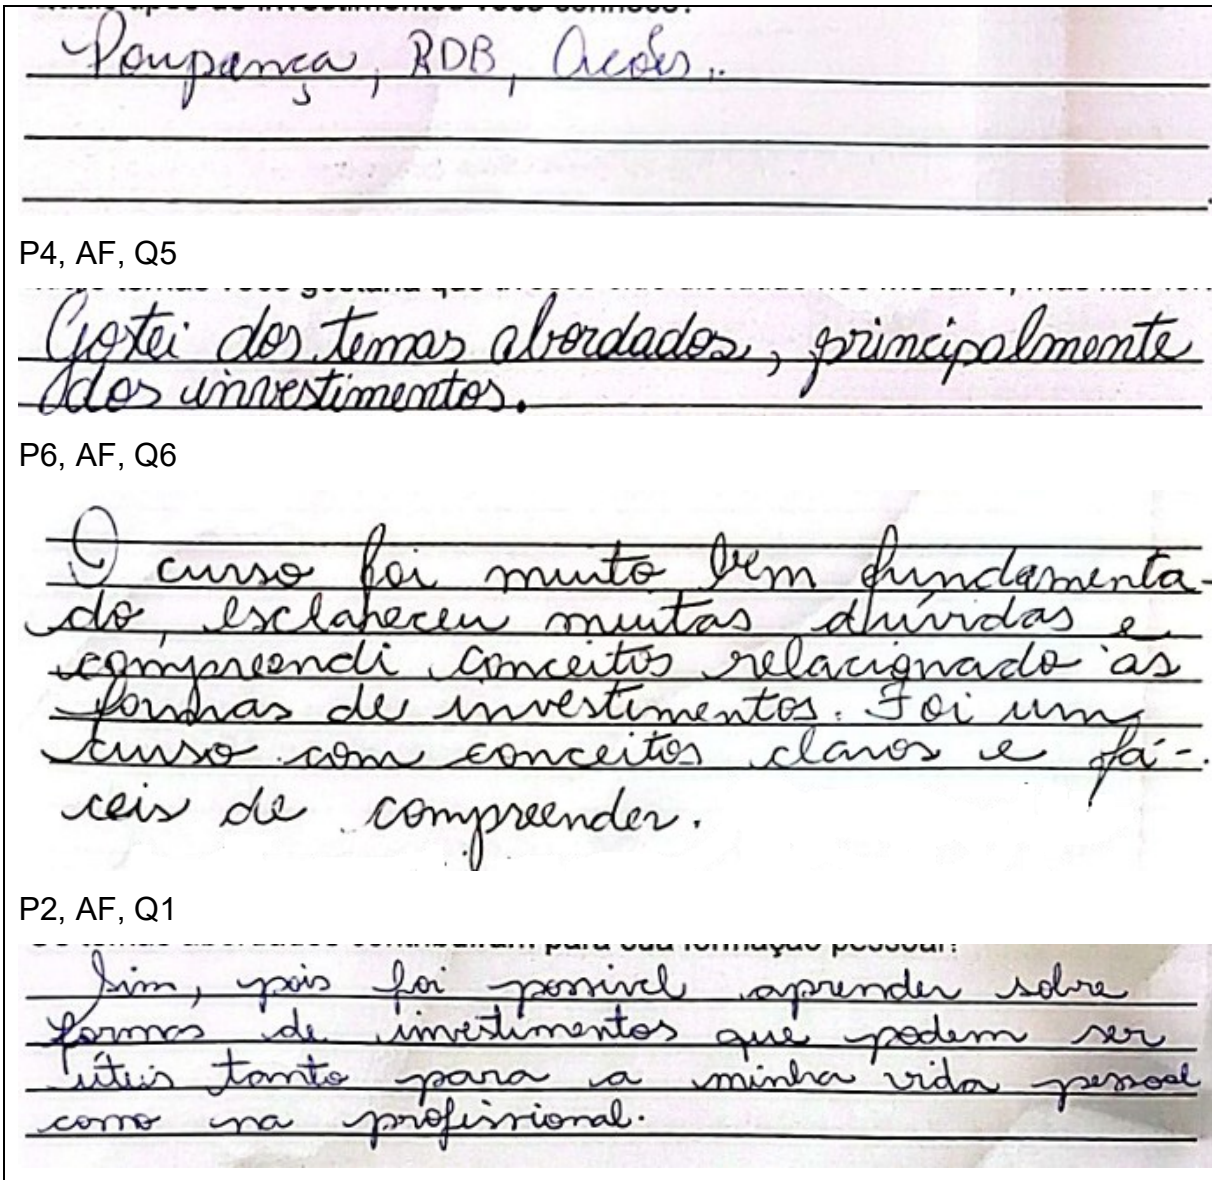 Poupança, RDB, Ações..
P4, AF, Q5
Gostei dos temas abordados, principalmente
dos investimentos.
P6, AF, Q6
O curso foi muito bem fundamenta-
do, esclareceu muitas dúvidas e
compreendi conceitos relacionado as
formas de investimentos. Foi um
curso com conceitos claros e fá-
ceis de compreender.
P2, AF, Q1
Os temas abordados contribuíram para sua formação pessoal?
Sim, pois foi possivel aprender sobre
formas de investimentos que podem ser
úteis tanto para a minha vida pessoal
como na profissional.